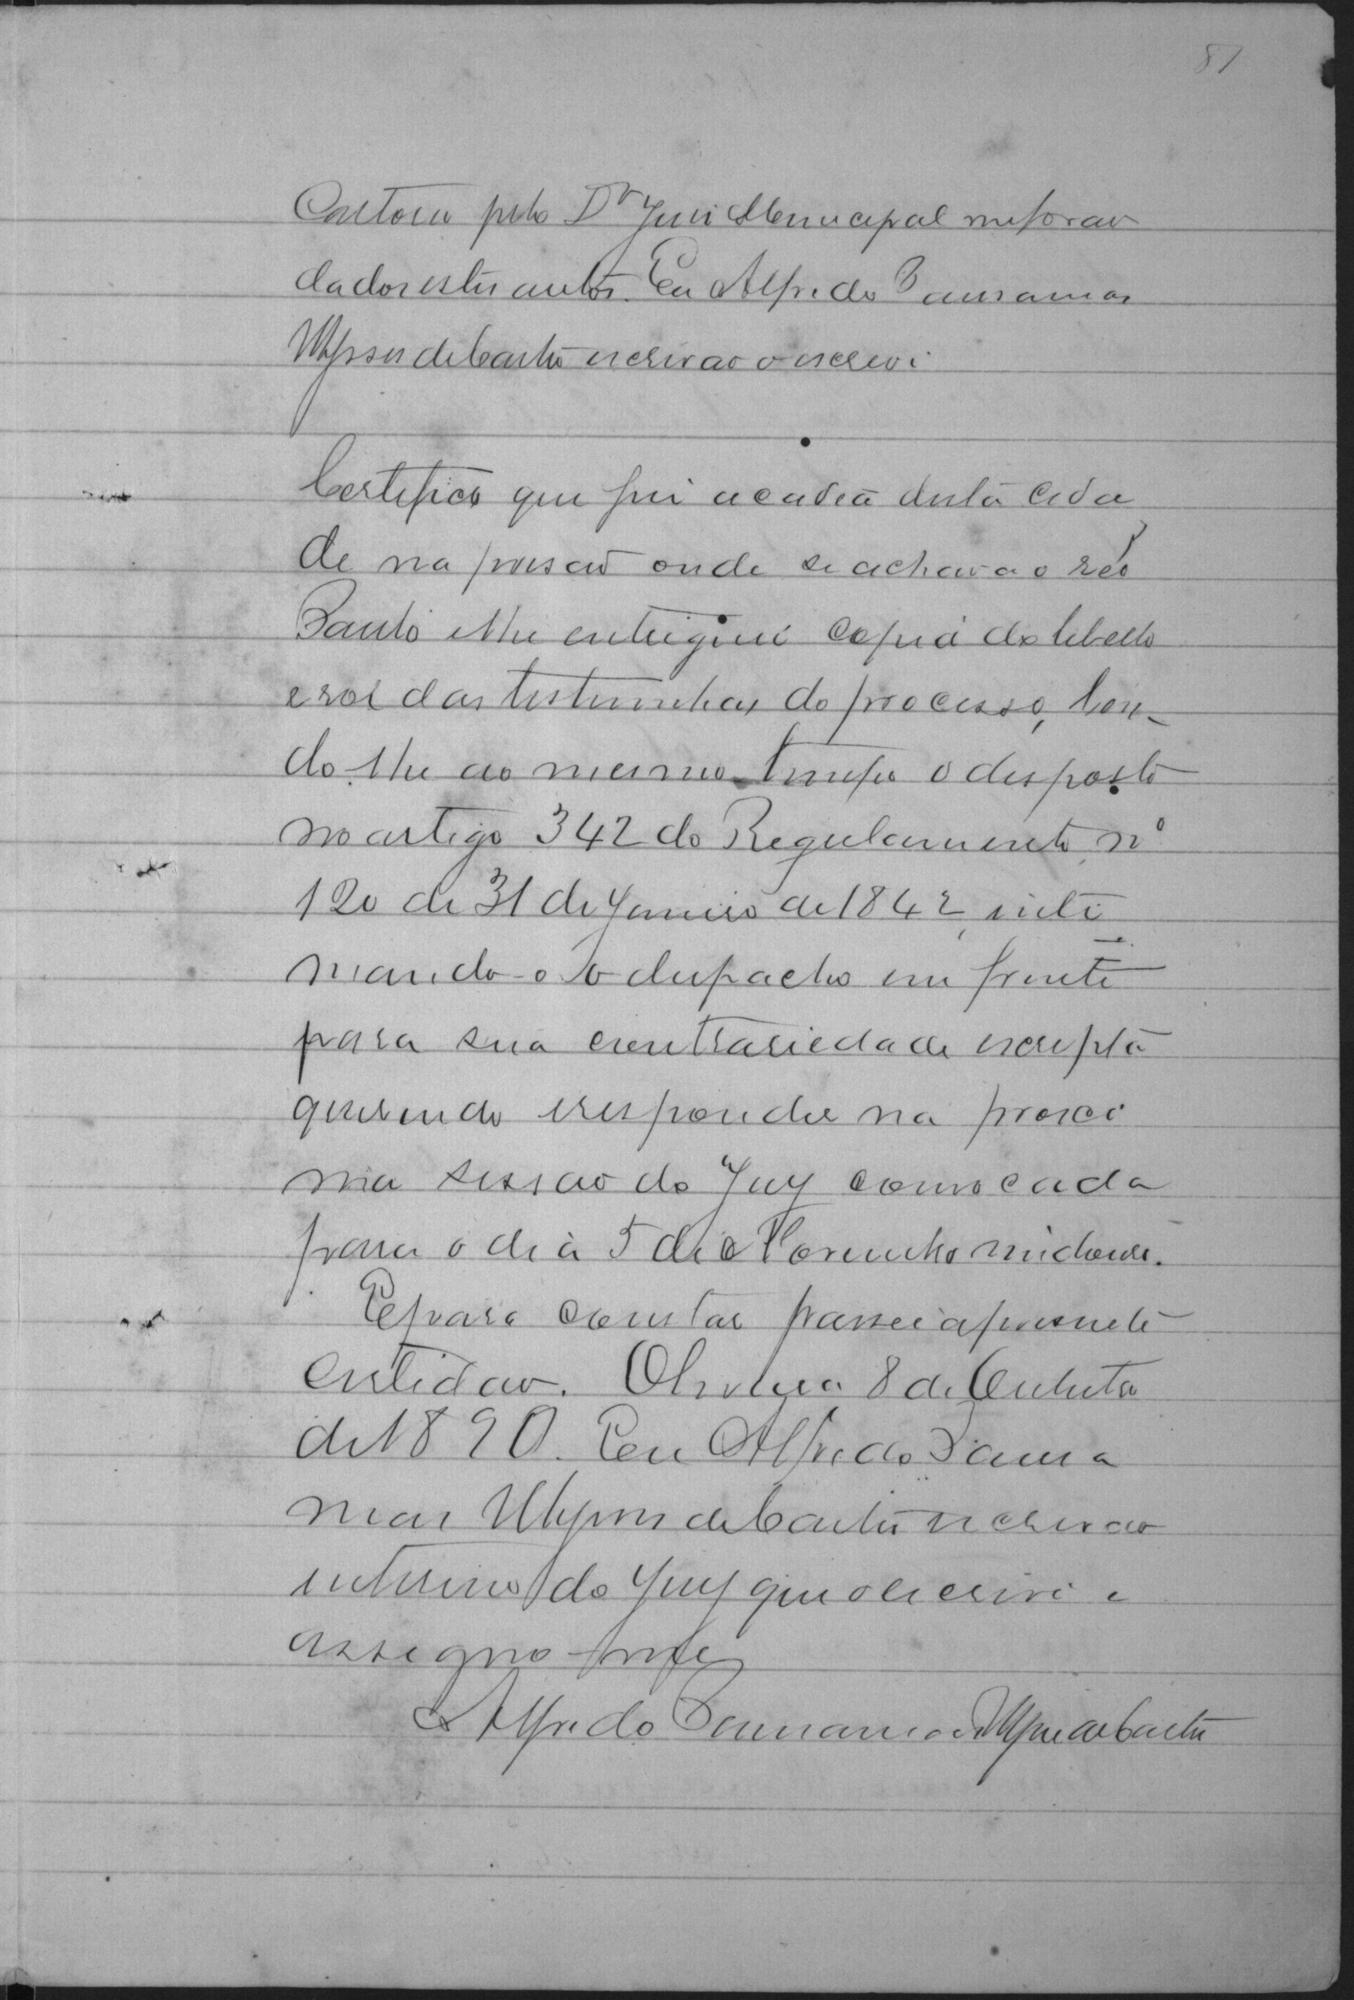 81
Cartorio pelo Dr Juiz Municipal me forão
dados estes autos. Eu Alfredo
de Castro escrivão o escrevi
Certifico que fui a cadeia desta cida
de na prisão onde se achava o réo
Paulo e lhe entreguei copia do libello
e rol das testemunhas do processo, len-
do-lhe ao mesmo tempo o disposto
no artigo 342 do Regulamento nº
120 de 31 de Janeiro de 1842, inti
mando-o o despacho em frente
para sua contrariedade escripta
querendo e responder na proxi
ma sessão do Jury convocada
para o dia 5 de Novembro vindouro.
E para constar passei a presente
certidão. 8 de Outubro
de 1890. Eu Alfredo
de Castro escrivão
interino do Jury que o escrevi e
assigno-me
Alfredo de Castro